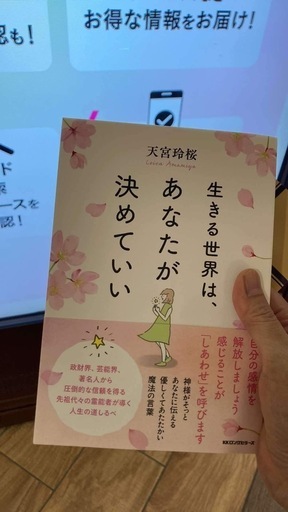 認も!
お得な情報をお届け!
天宮玲桜
生きる世界は、
あなたが
決めていい
自分の感情を
解放しましょう
感じることが
「しあわせ」を呼びます
神様がそっと
あなたに伝える
優しくてあたたかい
魔法の言葉
政財界、芸能界、
著名人から
圧倒的な信頼を得る
先祖代々の霊能者が導く
人生の道しるべ
KKロングセラーズ